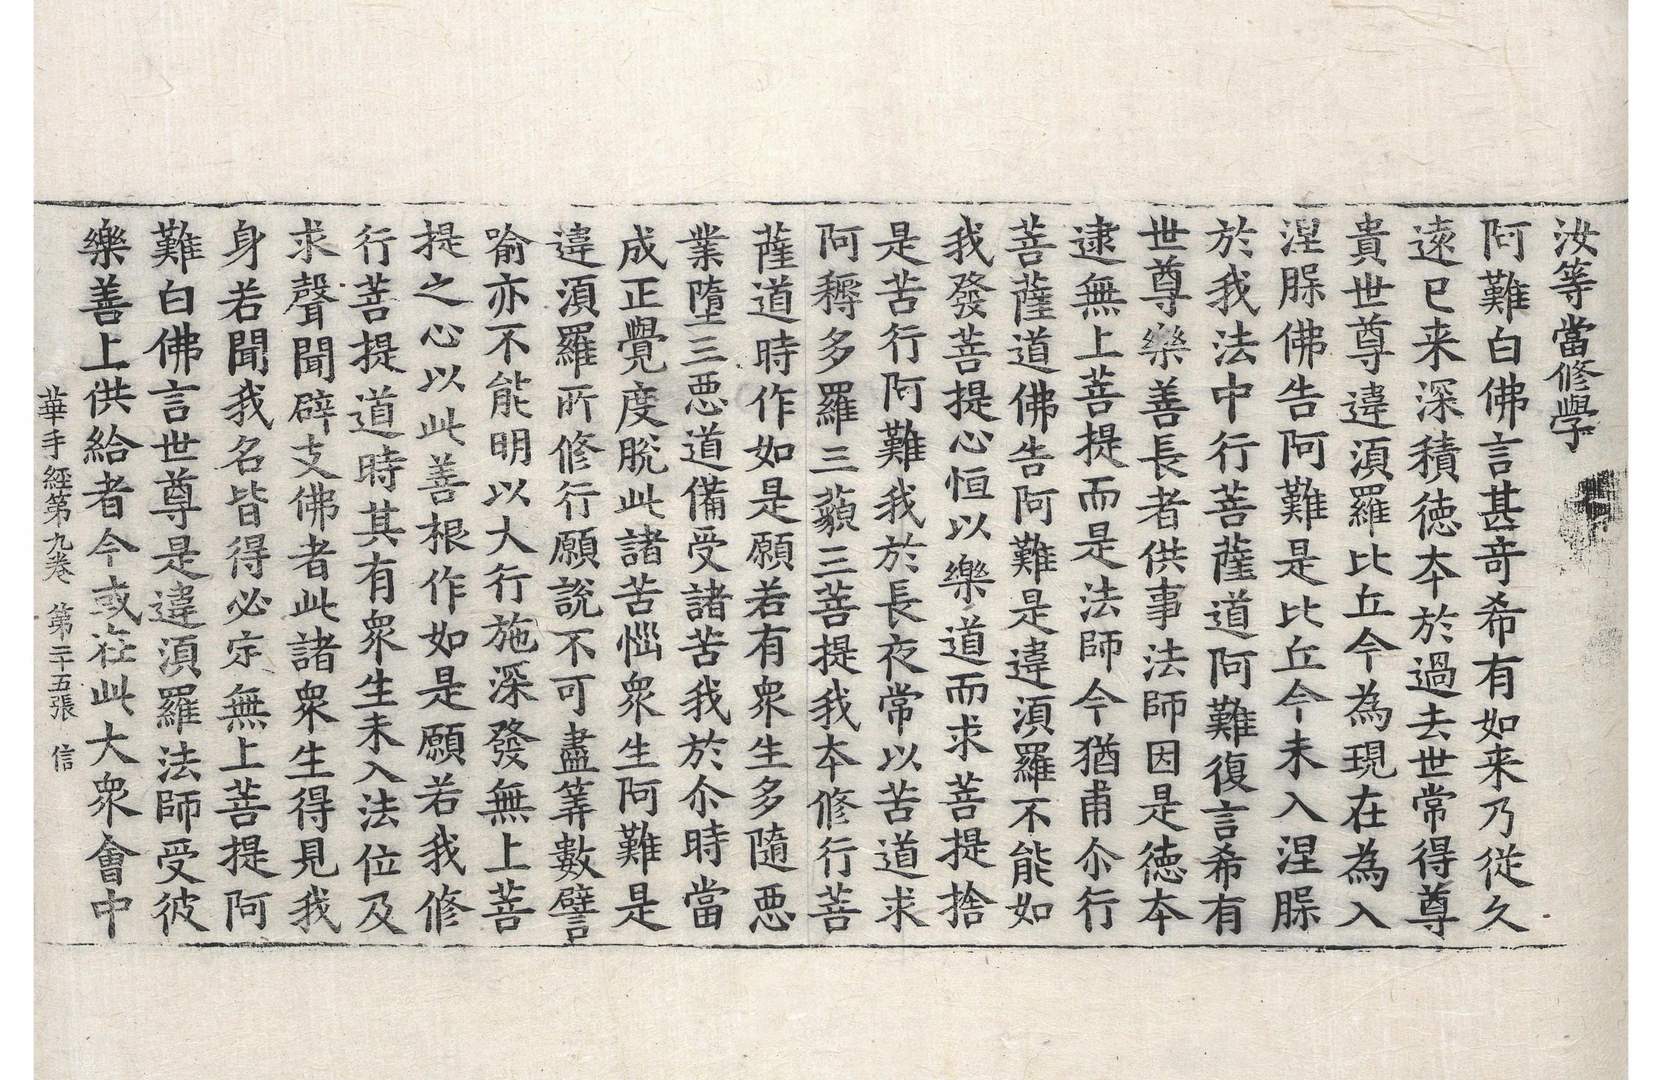 汝等當修學
阿難白佛言甚竒希有如来乃從久
遠已来深積徳夲於過去世常得尊
貴世尊違湏羅比丘今為現在為入
涅脲佛告阿難是比丘今未入涅脲
於我法中行菩薩道阿難復言希有
世尊樂善長者供事法師因是徳夲
逮無上菩提而是法師今猶甫尒行
菩薩道佛告阿難是違湏羅不能如
我發菩提心恒以樂道而求菩提捨
是苦行阿難我於長夜常以苦道求
阿耨多羅三藐三菩提我夲修行菩
薩道時作如是願若有衆生多隨惡
業墮三惡道備受諸苦我於尒時當
成正覺度脫此諸苦惱衆生阿難是
違湏羅所修行願說不可盡筭數譬
喻亦不能明以大行施深發無上菩
提之心以此善根作如是願若我修
行菩提道時其有衆生未入法位及
求聲聞辟支佛者此諸衆生得見我
身若聞我名皆得必定無上菩提阿
難白佛言世尊是違湏羅法師受彼
樂善上供給者今或在此大衆會中
華手経第九卷 第二十五張 信